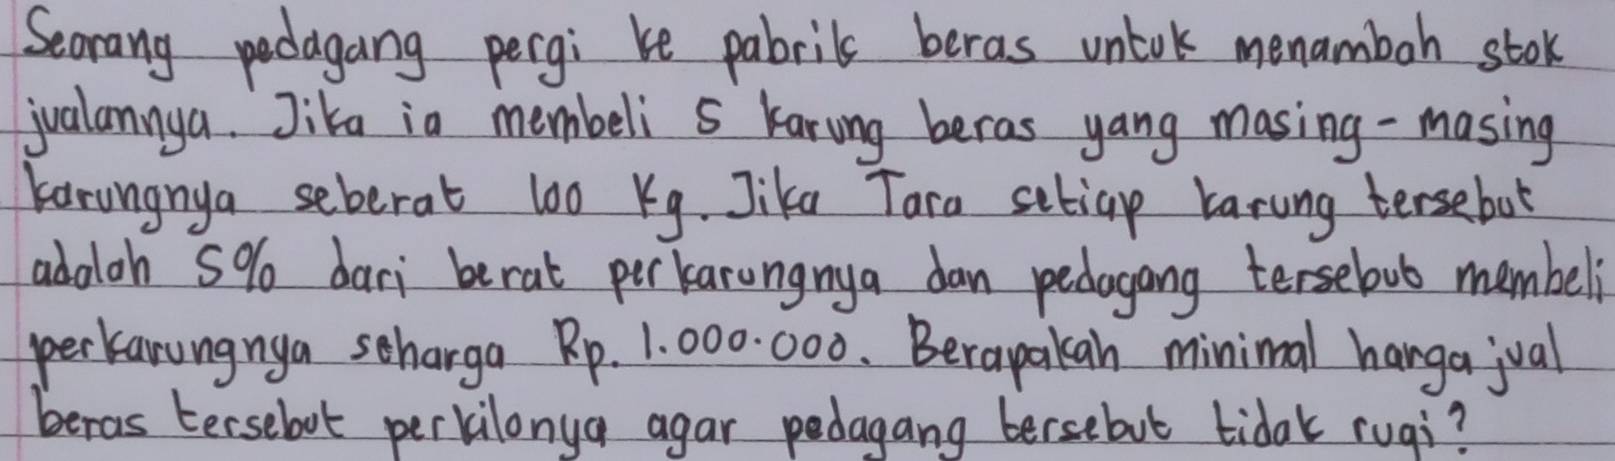 Seorang pedagang pergi ke pabrik beras untuk menambah stok
jualannya. Jika ia membeli 5 karung beras yang masing-masing
karungnya seberat 100 kg. Jika Tara setiap karung tersebut
adalah 5% dari berat perkarungnya dan pedagang tersebut membeli
perkarungnya seharga Rp. 1.000.000. Berapakah minimal harga jual
beras tersebut perkilonya agar pedagang tersebut tidak rugi?